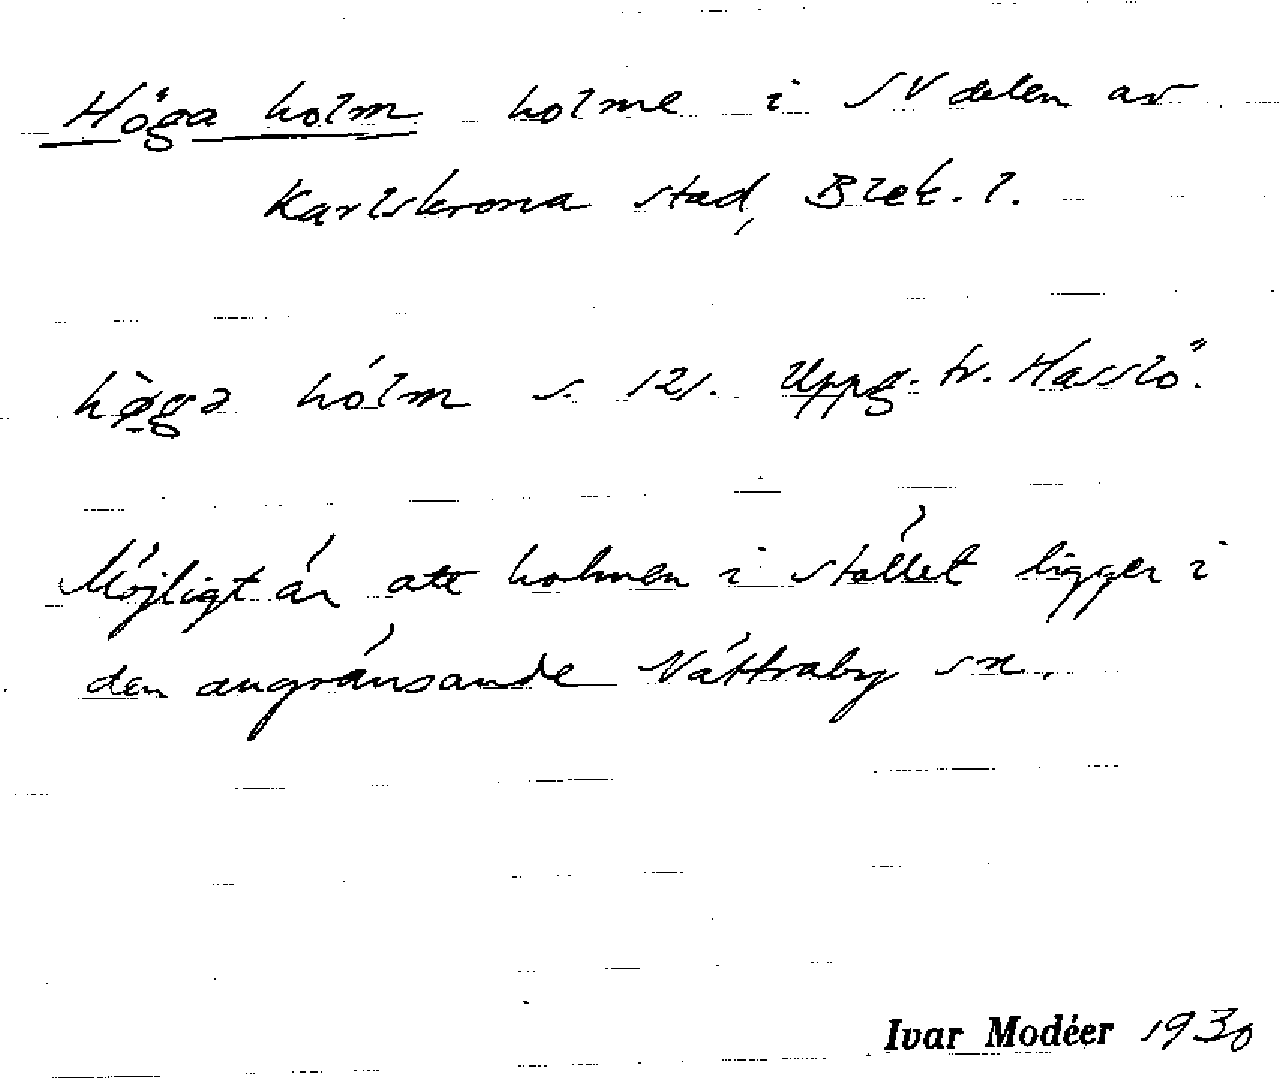 Höga holm holme i SV delen av
Karlskrona stad, Blek. l.
hø̀gə hólm s. 121. Uppg. fr. Hasslö.
Möjligt är att holmen i stället ligger i
den angränsande Nättraby sn.
Ivar Modéer 1930